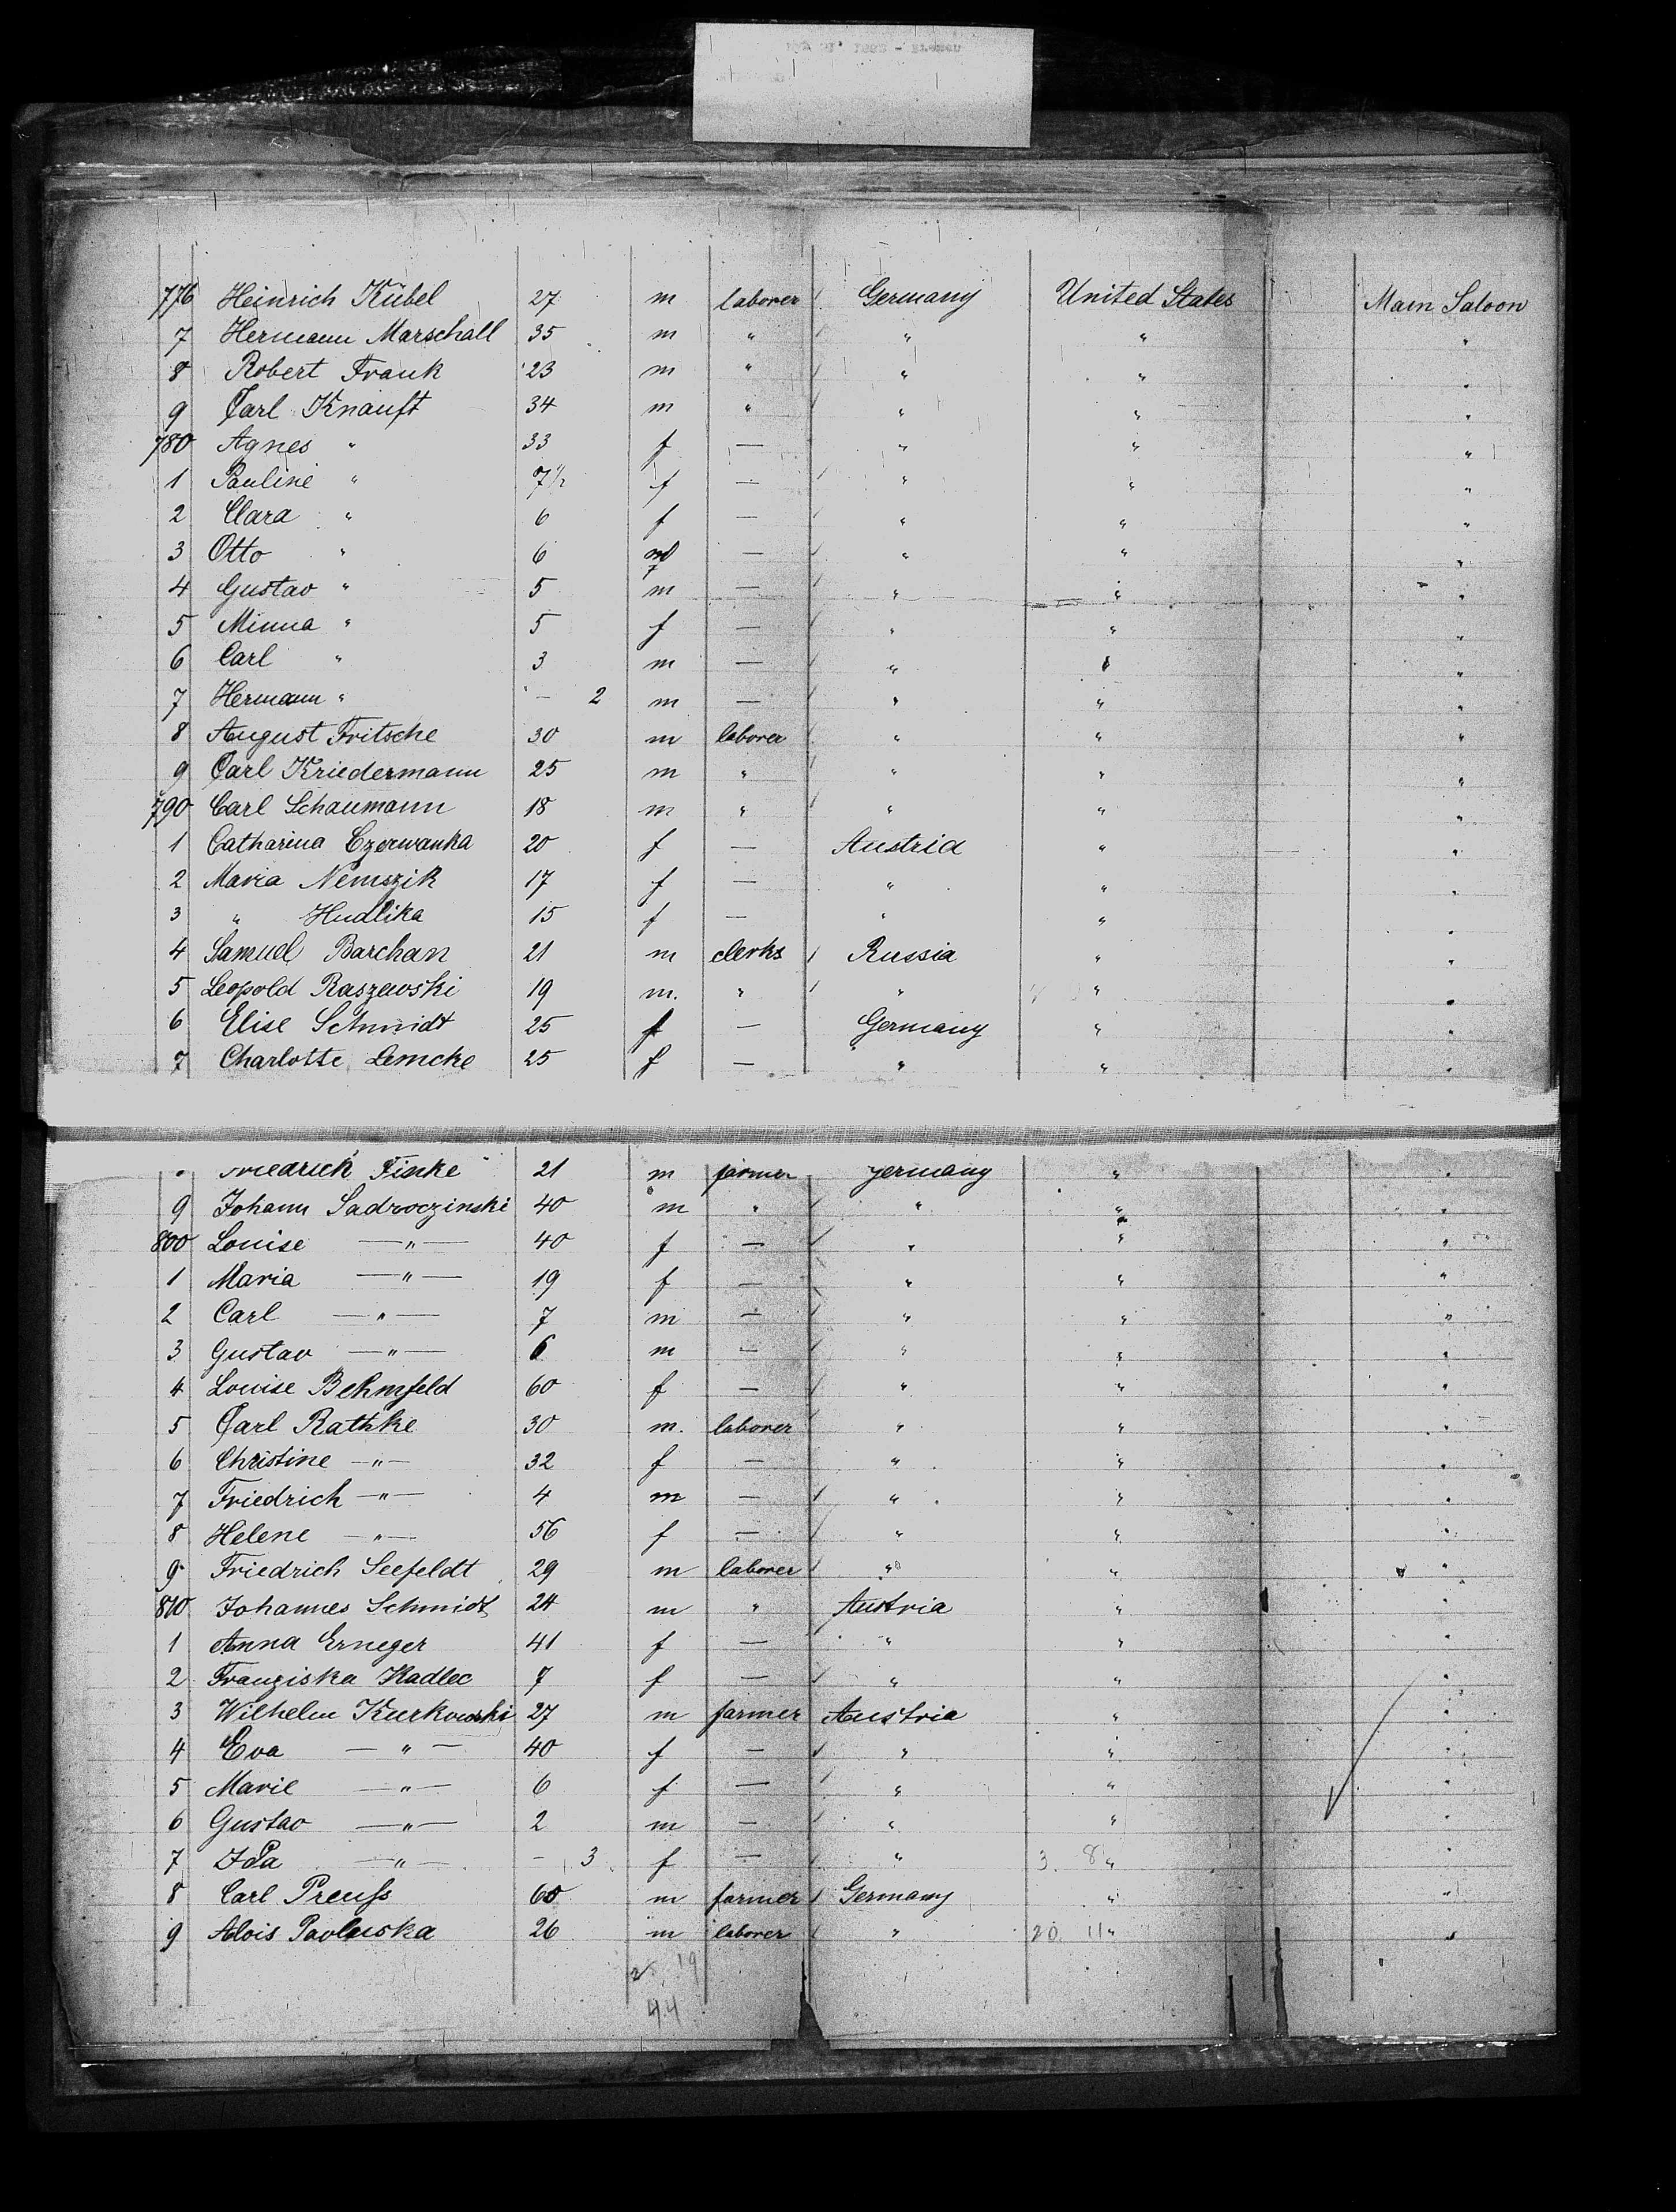 776 Heinrich Kübel 27 m laborer Germany United States Main Saloon
7 Hermann Marschall 35 m " " " "
8 Robert Frank 23 m " " " "
9 Carl Knauft 34 m " " " "
780 Agnes " 33 f — " " "
1 Pauline " 7½ f — " " "
2 Clara " 6 f — " " "
3 Otto " 6 m — " " "
4 Gustav " 5 m — " " "
5 Minna " 5 f — " " "
6 Carl " 3 m — " " "
7 Hermann " — 2 m — " " "
8 August Fritsche 30 m laborer " " "
9 Carl Kriedermann 25 m " " " "
790 Carl Schaumann 18 m " " " "
1 Catharina Czerwanka 20 f — Austria " "
2 Maria Nemszik 17 f — " " "
3 " Hudlika 15 f — " " "
4 Samuel Barchan 21 m clerks Russia " "
5 Leopold Raszewski 19 m. " " " "
6 Elise Schmidt 25 f — Germany " "
7 Charlotte Lemcke 25 f — " " "
Friedrich Finke 21 m farmer Germany " "
9 Johann Sadroczinski 40 m " " " "
800 Louise —"— 40 f — " " "
1 Maria —"— 19 f — " " "
2 Carl —"— 7 m — " " "
3 Gustav —"— 6 m — " " "
4 Louise Behmfeld 60 f — " " "
5 Carl Rathke 30 m. laborer " " "
6 Christine —"— 32 f — " " "
7 Friedrich —"— 4 m — " " "
8 Helene —"— 56 f — " " "
9 Friedrich Seefeldt 29 m laborer " " "
810 Johannes Schmidt 24 m " Austria " "
1 Anna Erneger 41 f — " " "
2 Franziska Hadlec 7 f — " " "
3 Wilhelm Kurkowski 27 m farmer Austria " "
4 Eva —"— 40 f — " " "
5 Marie —"— 6 f — " " "
6 Gustav —"— 2 m — " " "
7 Ida —"— — 3 f — " 3. 8 " "
8 Carl Preuſs 60 m farmer Germany " "
9 Alois Pavluska 26 m laborer " 20 11 " "
25 19
44